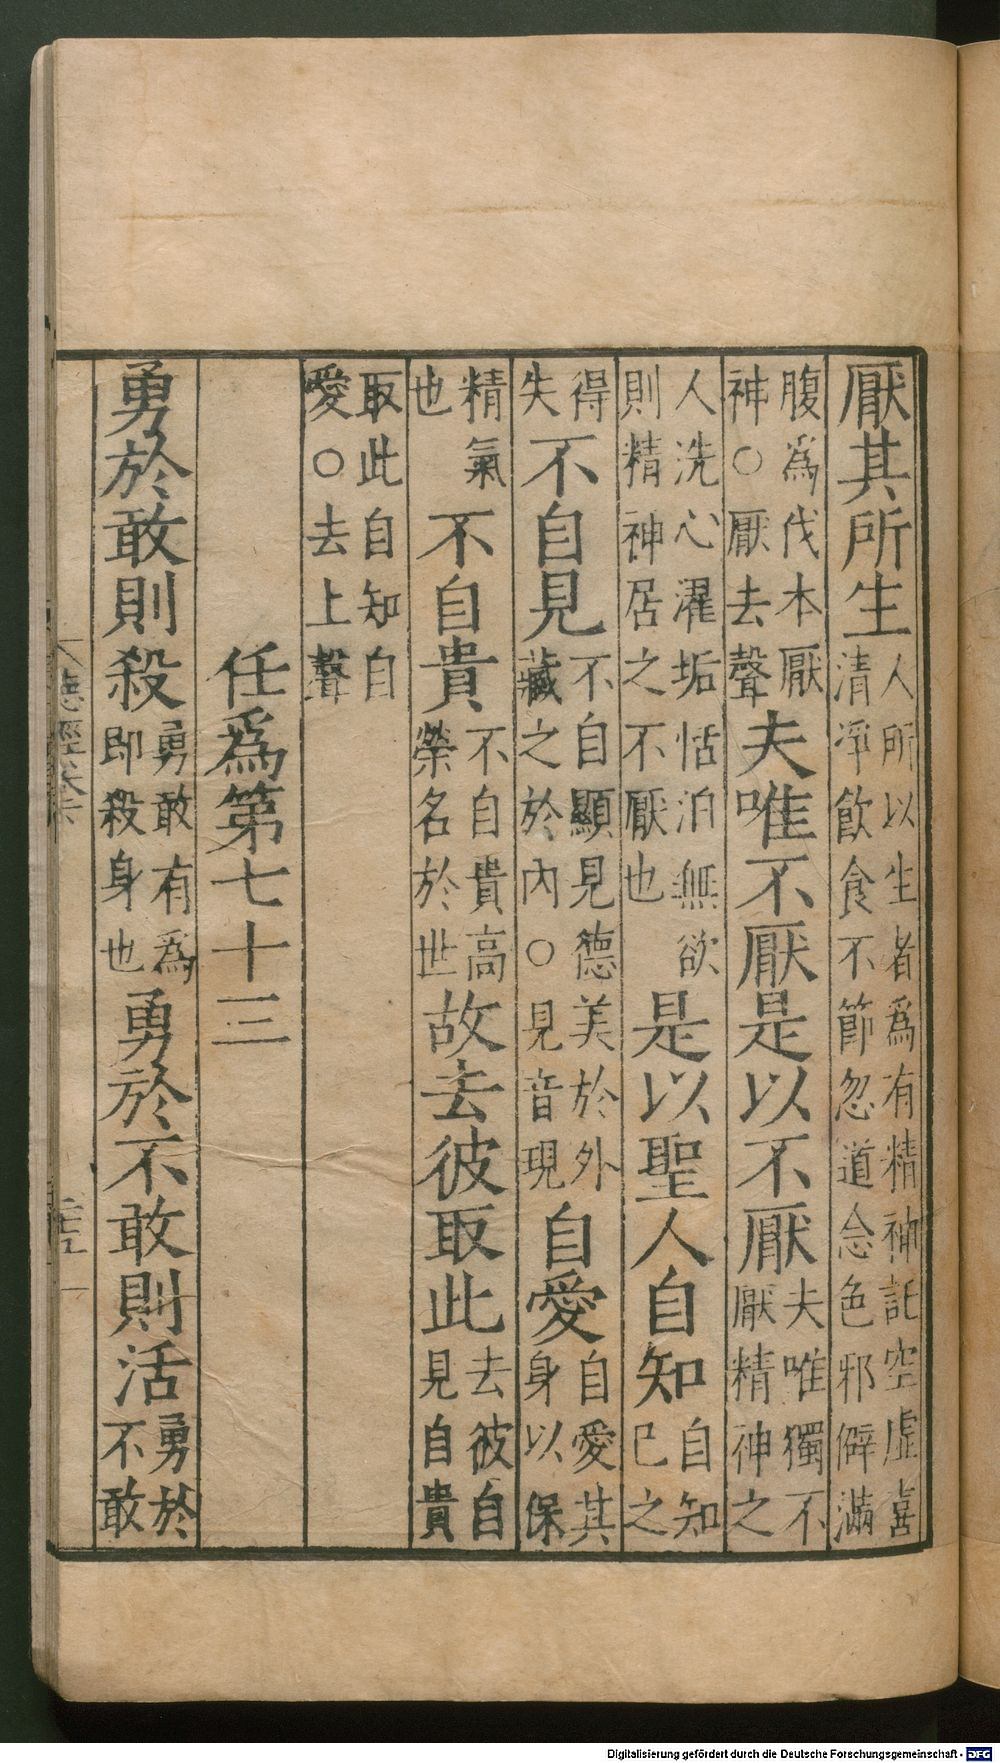 厭其所生人所以生者爲有精神託空虛喜清淨飲食不節忽道念色邪僻滿
腹爲伐本厭神○厭去聲夫唯不厭是以不厭夫唯獨不厭精神之
人洗心濯垢恬泊無欲則精神居之不厭也是以聖人自知自知己之
得失不自見不自顯見德美於外藏之於內○見音現自愛自愛其身以保
精氣也不自貴不自貴高榮名於世故去彼取此去彼自見自貴
取此自知自愛○去上聲
任爲第七十三
勇於敢則殺勇敢有爲即殺身也勇於不敢則活勇於不敢
Digitalisierung gefördert durch die Deutsche Forschungsgemeinschaft - DFG